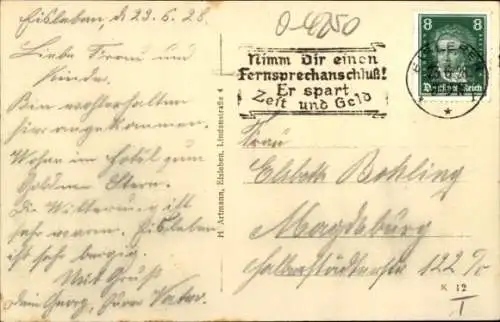 Eisleben, d. 23.6.28.
Liebe Frau und
Kinder.
Bin wohlerhalten
hier angekommen.
Wohne im Hotel zum
Goldnen Stern.
Die Witterung ist
sehr warm. Eisleben
ist sehr bergig.
Mit Gruß
dein Georg, Euer Vater.
H. Artmann, Eisleben, Lindenstraße 4
0-4250
Nimm Dir einen
Fernsprechanschluß!
Er spart
Zeit und Geld
8 8
Deutsches Reich
Frau
Elsbeth Bohling
Magdeburg
Halberstädterstr 122
K 12
I